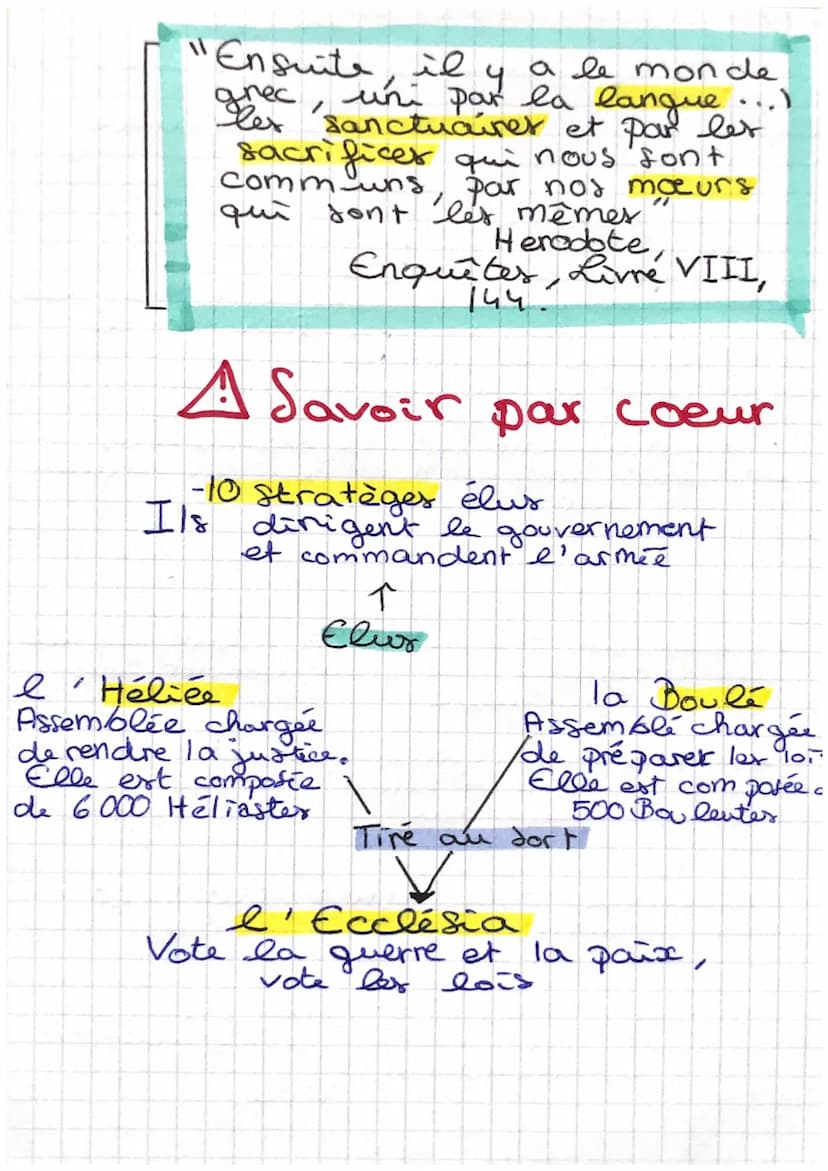 "Ensuite, il y a le monde
grec, uni par la langue ...)
les sanctuaires et par les
sacrifices qui nous sont
communs, par nos mœurs
qui sont les mêmes"
Herodote,
Enquêtes, Livre VIII,
144.
⚠ Savoir par coeur
-10 stratèges élus
Ils dirigent le gouvernement
et commandent l'armée
↑
Elus
l'Héliée
Assemblée chargée
de rendre la justice.
Elle est composée
de 6000 Héliastes
la Boulé
Assemblé chargée
de préparer les loi
Elle est composée d
500 Bouleutes
Tiré au sort
l'Ecclésia
Vote la guerre et la paix,
vote les lois